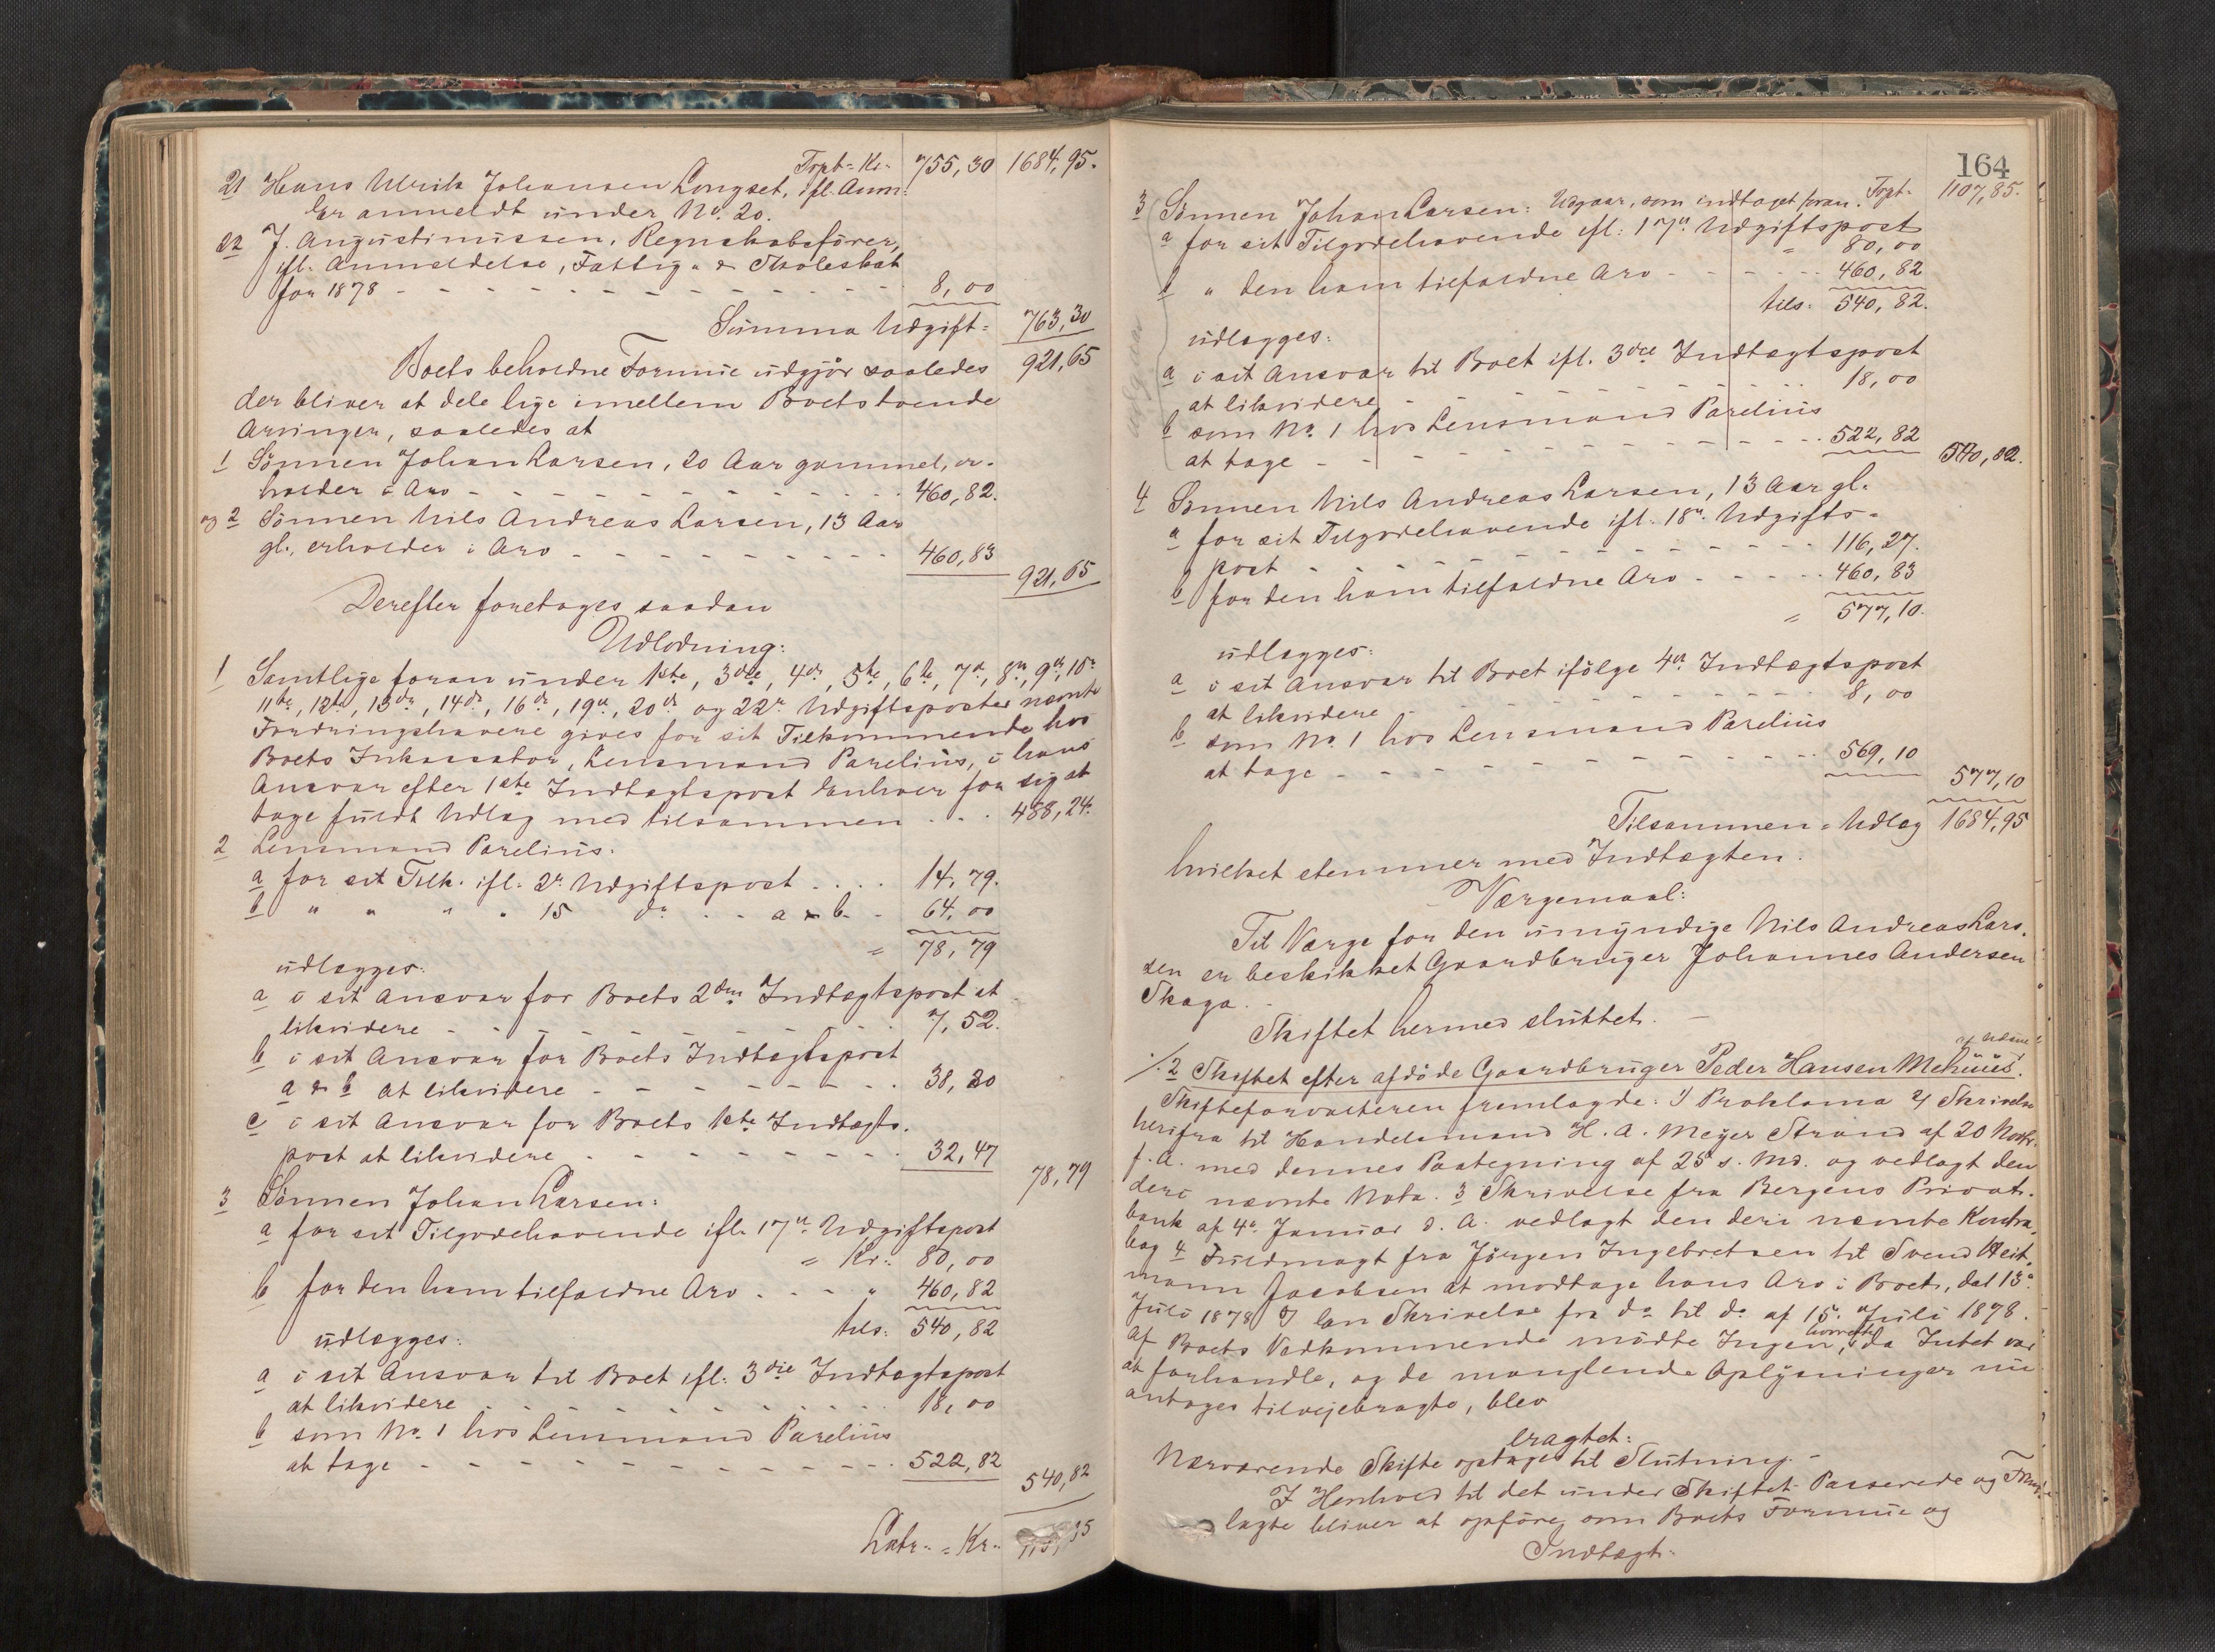 Trpt. Kr. 755,30 1684,95.
21 Hans Ulrik Johansen Longset, ifl. Anm:
Er anmeldt under No. 20.
22 J. Augustinussen, Regnskabsfører,
ifl. Anmeldelse, Fattig- & Skoleskat
for 1878 - - - 8,00
Summa Udgift = 763,30
Boets beholdne Formue udgjør saaledes 921,65
der bliver at dele lige imellem Boets tvende
Arvinger, saaledes at
1 Sønnen Johan Larsen, 20 Aar gammel, er-
holder i Arv - - - 460,82.
og 2 Sønnen Nils Andreas Larsen, 13 Aar
gl., erholder i Arv - - - 460,83
921,65
Derefter foretages saadan
Udlodning:
1 Samtlige foran under 1ste, 3die, 4de, 5te, 6te, 7de, 8de, 9de, 10de
11te, 12te, 13de, 14de, 16de, 19de, 20de og 22de Udgiftsposter nævnte
Fordringshavere gives for sit Tilkommende hos
Boets Inkassator, Lensmand Parelius, i hans
Ansvar efter 1ste Indtægtspost Enhver for sig at
tage fuldt Udlæg med tilsammen - - - 488,24.
2 Lensmand Parelius:
a for sit Tilk. ifl. 2n Udgiftspost . . . . 14,79.
b " " " " 15 do . - a & b. - 64,00
= 78,79
udlægges:
a i sit Ansvar for Boets 2den Indtægtspost at
likvidere - - - 7,52.
b i sit Ansvar for Boets Indtægtspost
a & b at likvidere - - - 38,80
c i sit Ansvar for Boets 1ste Indtægts-
post at likvidere - - - 32,47
78,79
3 Sønnen Johan Larsen:
a for sit Tilgodehavende ifl. 17n Udgiftspost
= Kr. 80,00
b for den ham tilfaldne Arv - - - " 460,82
tils: 540,82
udlægges:
a i sit Ansvar til Boet ifl. 3die Indtægtspost
at likvidere - - - 18,00
b som No. 1 hos Lensmand Parelius
at tage - - - 522,82
540,82
Latr. = Kr.
164
3 Sønnen Johan Larsen: Udgaar, som indtaget foran. Trpt. 1107,85.
a for sit Tilgodehavende ifl. 17n Udgiftspost
= 80,00
b " den ham tilfaldne Arv - - - 460,82
tils: 540,82.
udlægges:
a i sit Ansvar til Boet ifl. 3die Indtægtspost
at likvidere - - - 18,00
b som No. 1 hos Lensmand Parelius
at tage - - - 522,82
540,82.
4 Sønnen Nils Andreas Larsen, 13 Aar gl.
a for sit Tilgodehavende ifl. 18n Udgifts-
post - - - 116,27.
b for den ham tilfaldne Arv - - - 460,83
= 577,10.
udlægges:
a i sit Ansvar til Boet ifølge 4de Indtægtspost
at likvidere - - - 8,00
b som No. 1 hos Lensmand Parelius
at tage - - - 569,10
577,10
Tilsammen = Udlæg 1684,95
hvilket stemmer med Indtægten.
Værgemaal:
Til Værge for den umyndige Nils Andreas Lar-
sen er beskikket Gaardbruger Johannes Andersen
Skaga.
Skiftet hermed sluttet. -
./. 2 Skiftet efter afdøde Gaardbruger Peder Hansen Mehuus.
Skifteforvalteren fremlagde: 1) Proklama 2) Skrivelse
herifra til Handelsmand H. A. Meyer Strand af 20 Novbr.
f. A. med dennes Paategning af 25 s. Md. og vedlagt den
deri nævnte Nota. 3 Skrivelse fra Bergens Privat-
bank af 4de Januar d. A. vedlagt den deri nævnte Kontra-
bog 4 Fuldmagt fra Jørgen Ingebretsen til Svend Heit-
mann Jacobsen at modtage hans Arv i Boet, dat 13de
Juli 1878 5) en Skrivelse fra do til do af 15de Juli 1878.
Af Boets Vedkommende mødte Ingen, hvorefter, da Intet var
at forhandle, og de manglende Oplysninger nu
antages tilvejebragte, blev
eragtet:
Nærværende Skifte optages til Slutning. -
I Henhold til det under Skiftet Passerede og Frem-
lagte bliver at opføre som Boets Formue og
Indtægt: